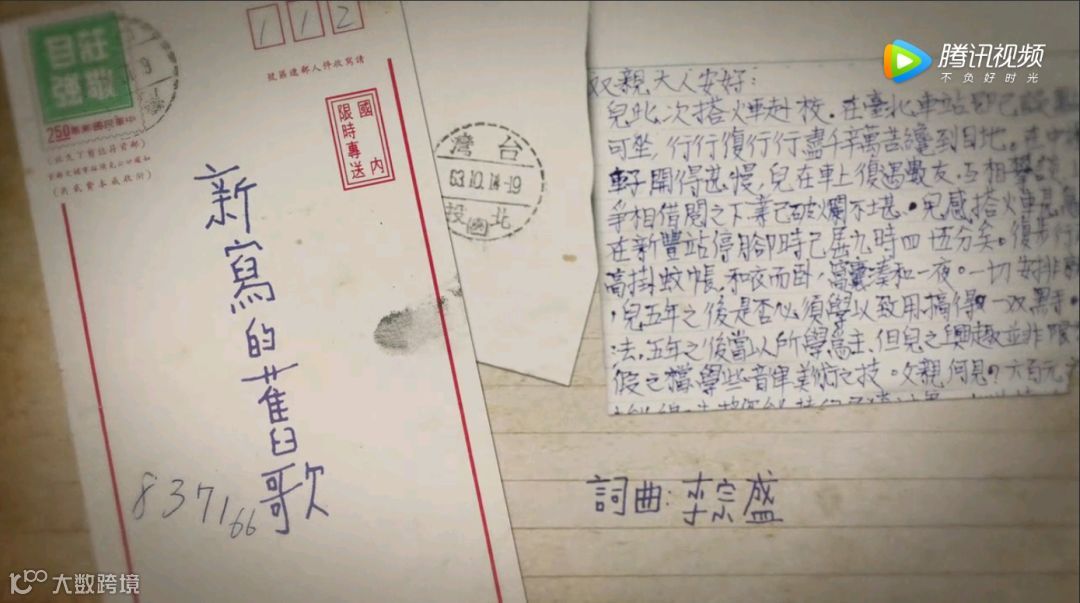 112
請寫收件人郵遞區號
莊敬
自強
250
中華民國郵票
國內
限時專送
新寫的舊歌
837166
台灣
63.10.14-19
北投
父親大人安好：
兒此次搭火車赴校。在臺北車站即已
可坐，行行復行行盡千辛萬苦纔到目地。在中
車子開得甚慢，兒在車上復遇數友，互相
爭相借閱之下業已破爛不堪。兒感搭火車
在新豐站停月卻時已屆九時四五分矣。復步行
高掛蚊帳，和衣而卧，窩囊湊和一夜。一切安排
，兒五年之後是否必須學以致用搞得一双黑手
法，五年之後當以所學為主，但兒之興趣並非限
假之檔，學些音樂美術之技。父親何見？六百元
詞曲：李宗盛
腾讯视频
不负好时光
大数跨境